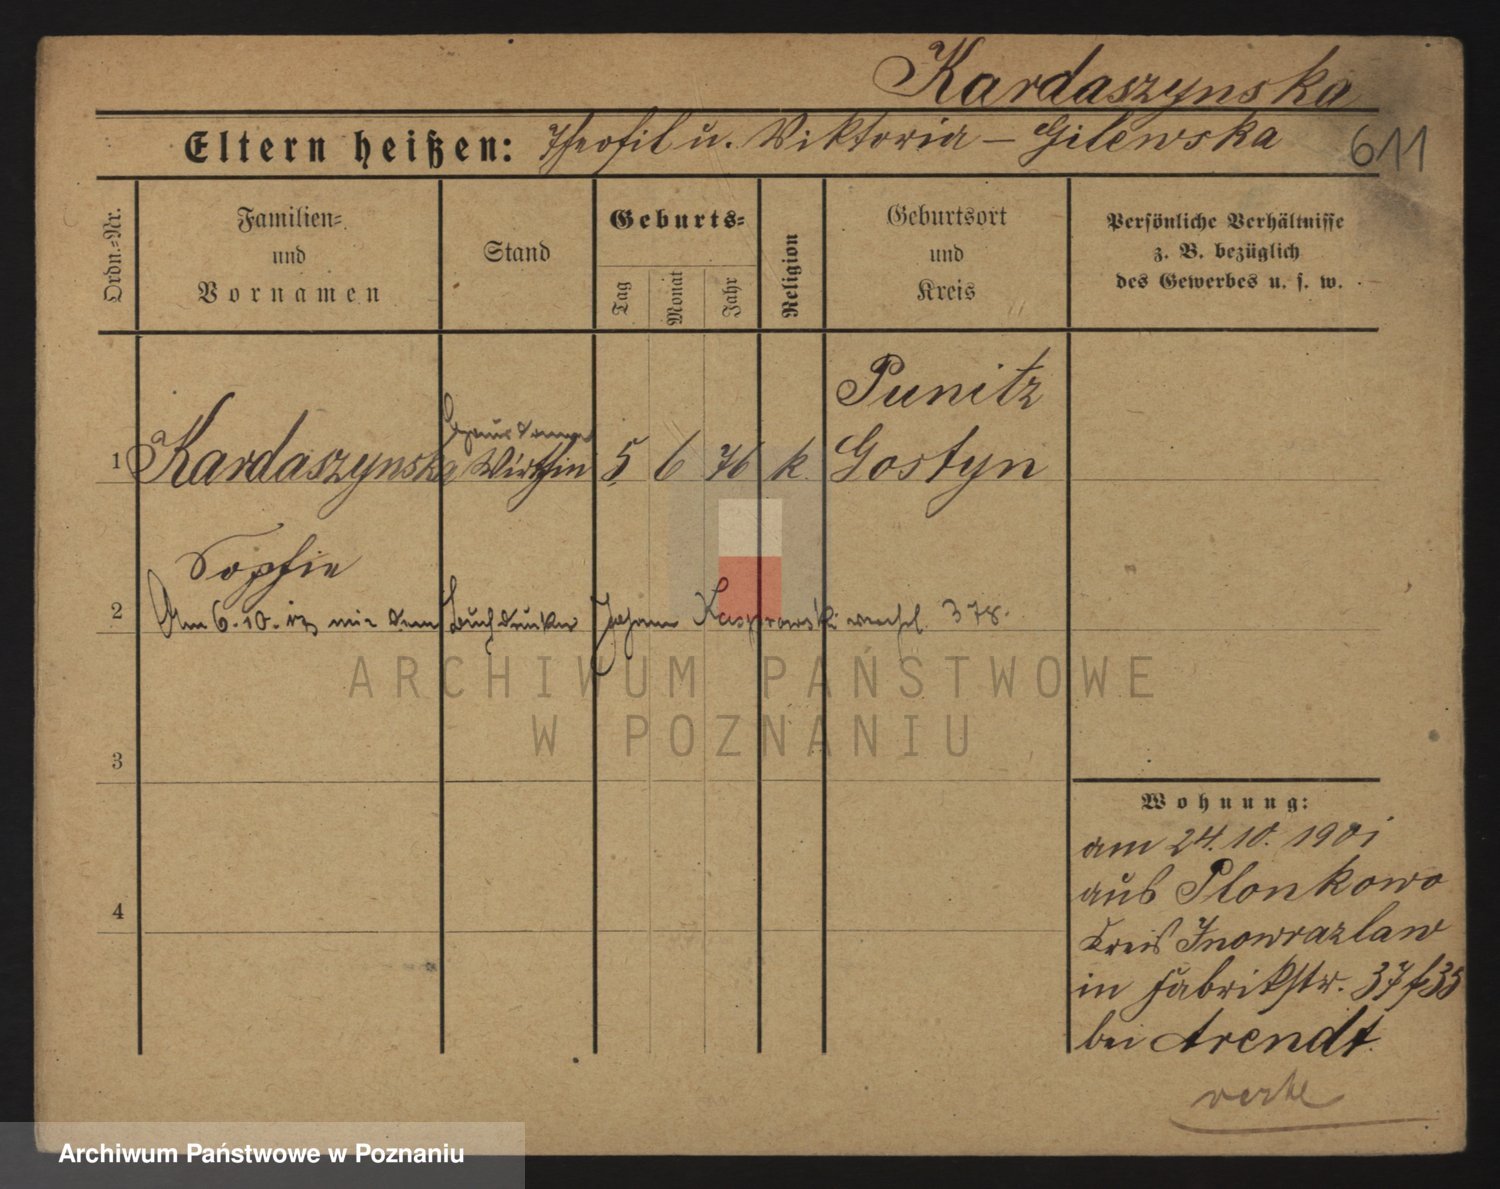 Kardaszynska
Eltern heißen: Theofil u. Viktoria – Gilewska
611
Ordn.-Nr.
Familien-
und
Vornamen
Stand
Geburts-
Tag
Monat
Jahr
Religion
Geburtsort
und
Kreis
Persönliche Verhältnisse
z. B. bezüglich
des Gewerbes u. s. w.
Punitz
1 Kardaszynska Wirthin 5 6 76 k. Gostyn
Sophie
2 Am 6.10. mit dem Buchdrucker Johann Kasprowski 378.
ARCHIWUM PAŃSTWOWE
W POZNANIU
3
4
Wohnung:
am 24.10.1901
aus Plonkowo
Kreis Inowrazlaw
in Fabrikstr. 37/35
bei Arendt
Archiwum Państwowe w Poznaniu